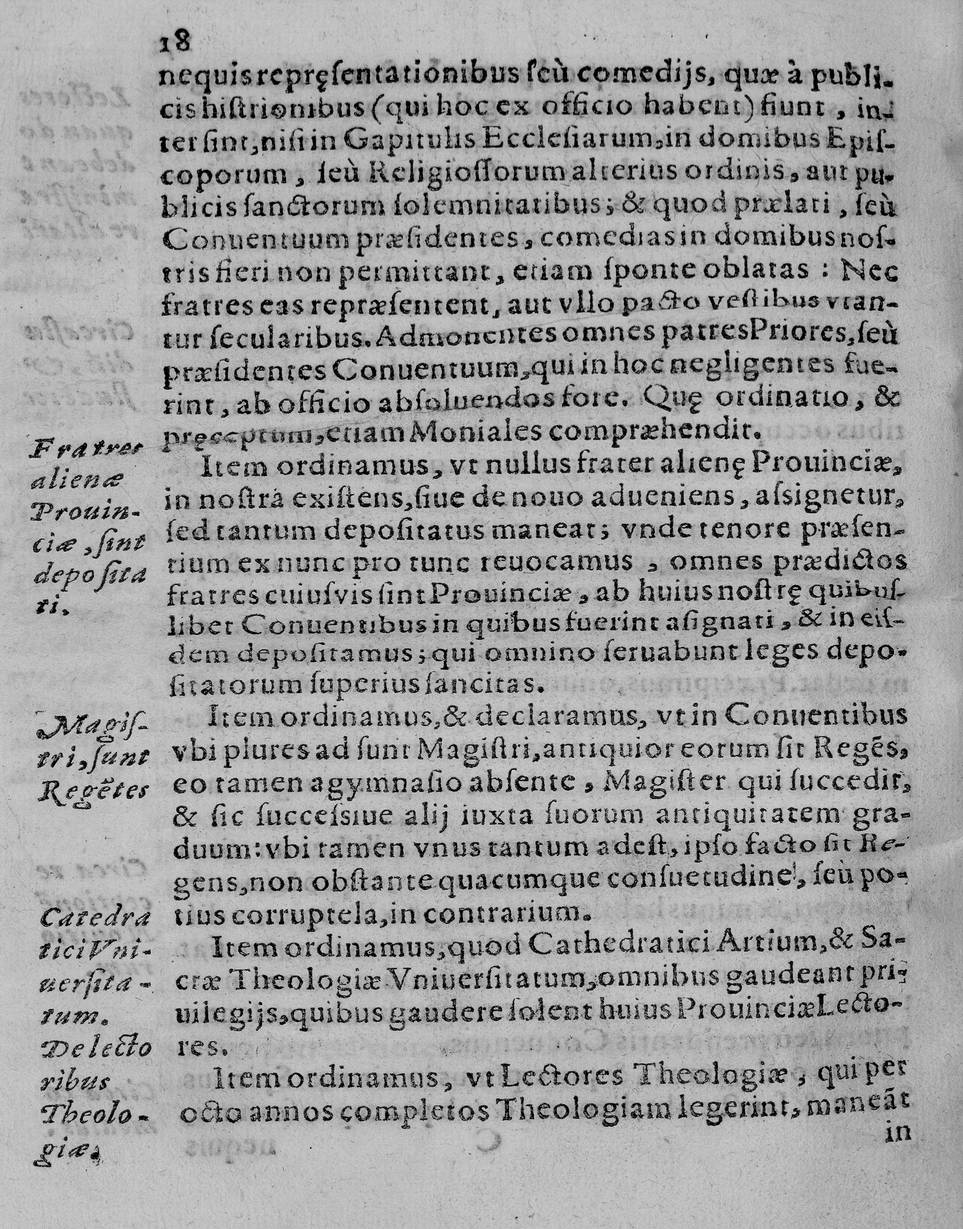 18
nequis repręſentationibus ſeù comedijs, quæ à publi-
cis hiſtrionibus (qui hoc ex officio habent) fiunt, in-
terſint, niſi in Gapitulis Eccleſiarum, in domibus Epiſ-
coporum, ſeù Religioſſorum alterius ordinis, aut pu-
blicis ſanctorum ſolemnitatibus; & quod prælati, ſeù
Conuentuum præſidentes, comedias in domibus noſ-
tris fieri non permittant, etiam ſponte oblatas : Nec
fratres eas repræſentent, aut vllo pacto veſtibus vtan-
tur ſecularibus. Admonentes omnes patres Priores, ſeù
præſidentes Conuentuum, qui in hoc negligentes fue-
rint, ab officio abſoluendos fore. Quę ordinatio, &
pręceptum, etiam Moniales compræhendit.
Fratres
alienæ
Prouin-
ciæ, ſint
depoſita
ti.
Item ordinamus, vt nullus frater alienę Prouinciæ,
in noſtrá exiſtens, ſiue de nouo adueniens, aſsignetur,
ſed tantum depoſitatus maneat; vnde tenore præſen-
tium ex nunc pro tunc reuocamus, omnes prædictos
fratres cuiuſvis ſint Prouinciæ, ab huius noſtrę quibuſ-
libet Conuentibus in quibus fuerint aſignati, & in eiſ-
dem depoſitamus; qui omnino ſeruabunt leges depo-
ſitatorum ſuperius ſancitas.
Magiſ-
tri, ſunt
Regẽtes
Item ordinamus, & declaramus, vt in Conuentibus
vbi plures ad ſunt Magiſtri, antiquior eorum ſit Regẽs,
eo tamen a gymnaſio abſente, Magiſter qui ſuccedit,
& ſic ſucceſsiue alij iuxta ſuorum antiquitatem gra-
duum: vbi tamen vnus tantum adeſt, ipſo facto ſit Re-
gens, non obſtante quacumque conſuetudine, ſeù po-
tius corruptela, in contrarium.
Catedra
tici Vni-
uerſita-
tum.
Item ordinamus, quod Cathedratici Artium, & Sa-
cræ Theologiæ Vniuerſitatum, omnibus gaudeant pri-
uilegijs, quibus gaudere ſolent huius Prouinciæ Lecto-
res.
De lecto
ribus
Theolo-
giæ.
Item ordinamus, vt Lectores Theologiæ, qui per
octo annos completos Theologiam legerint, maneãt
in